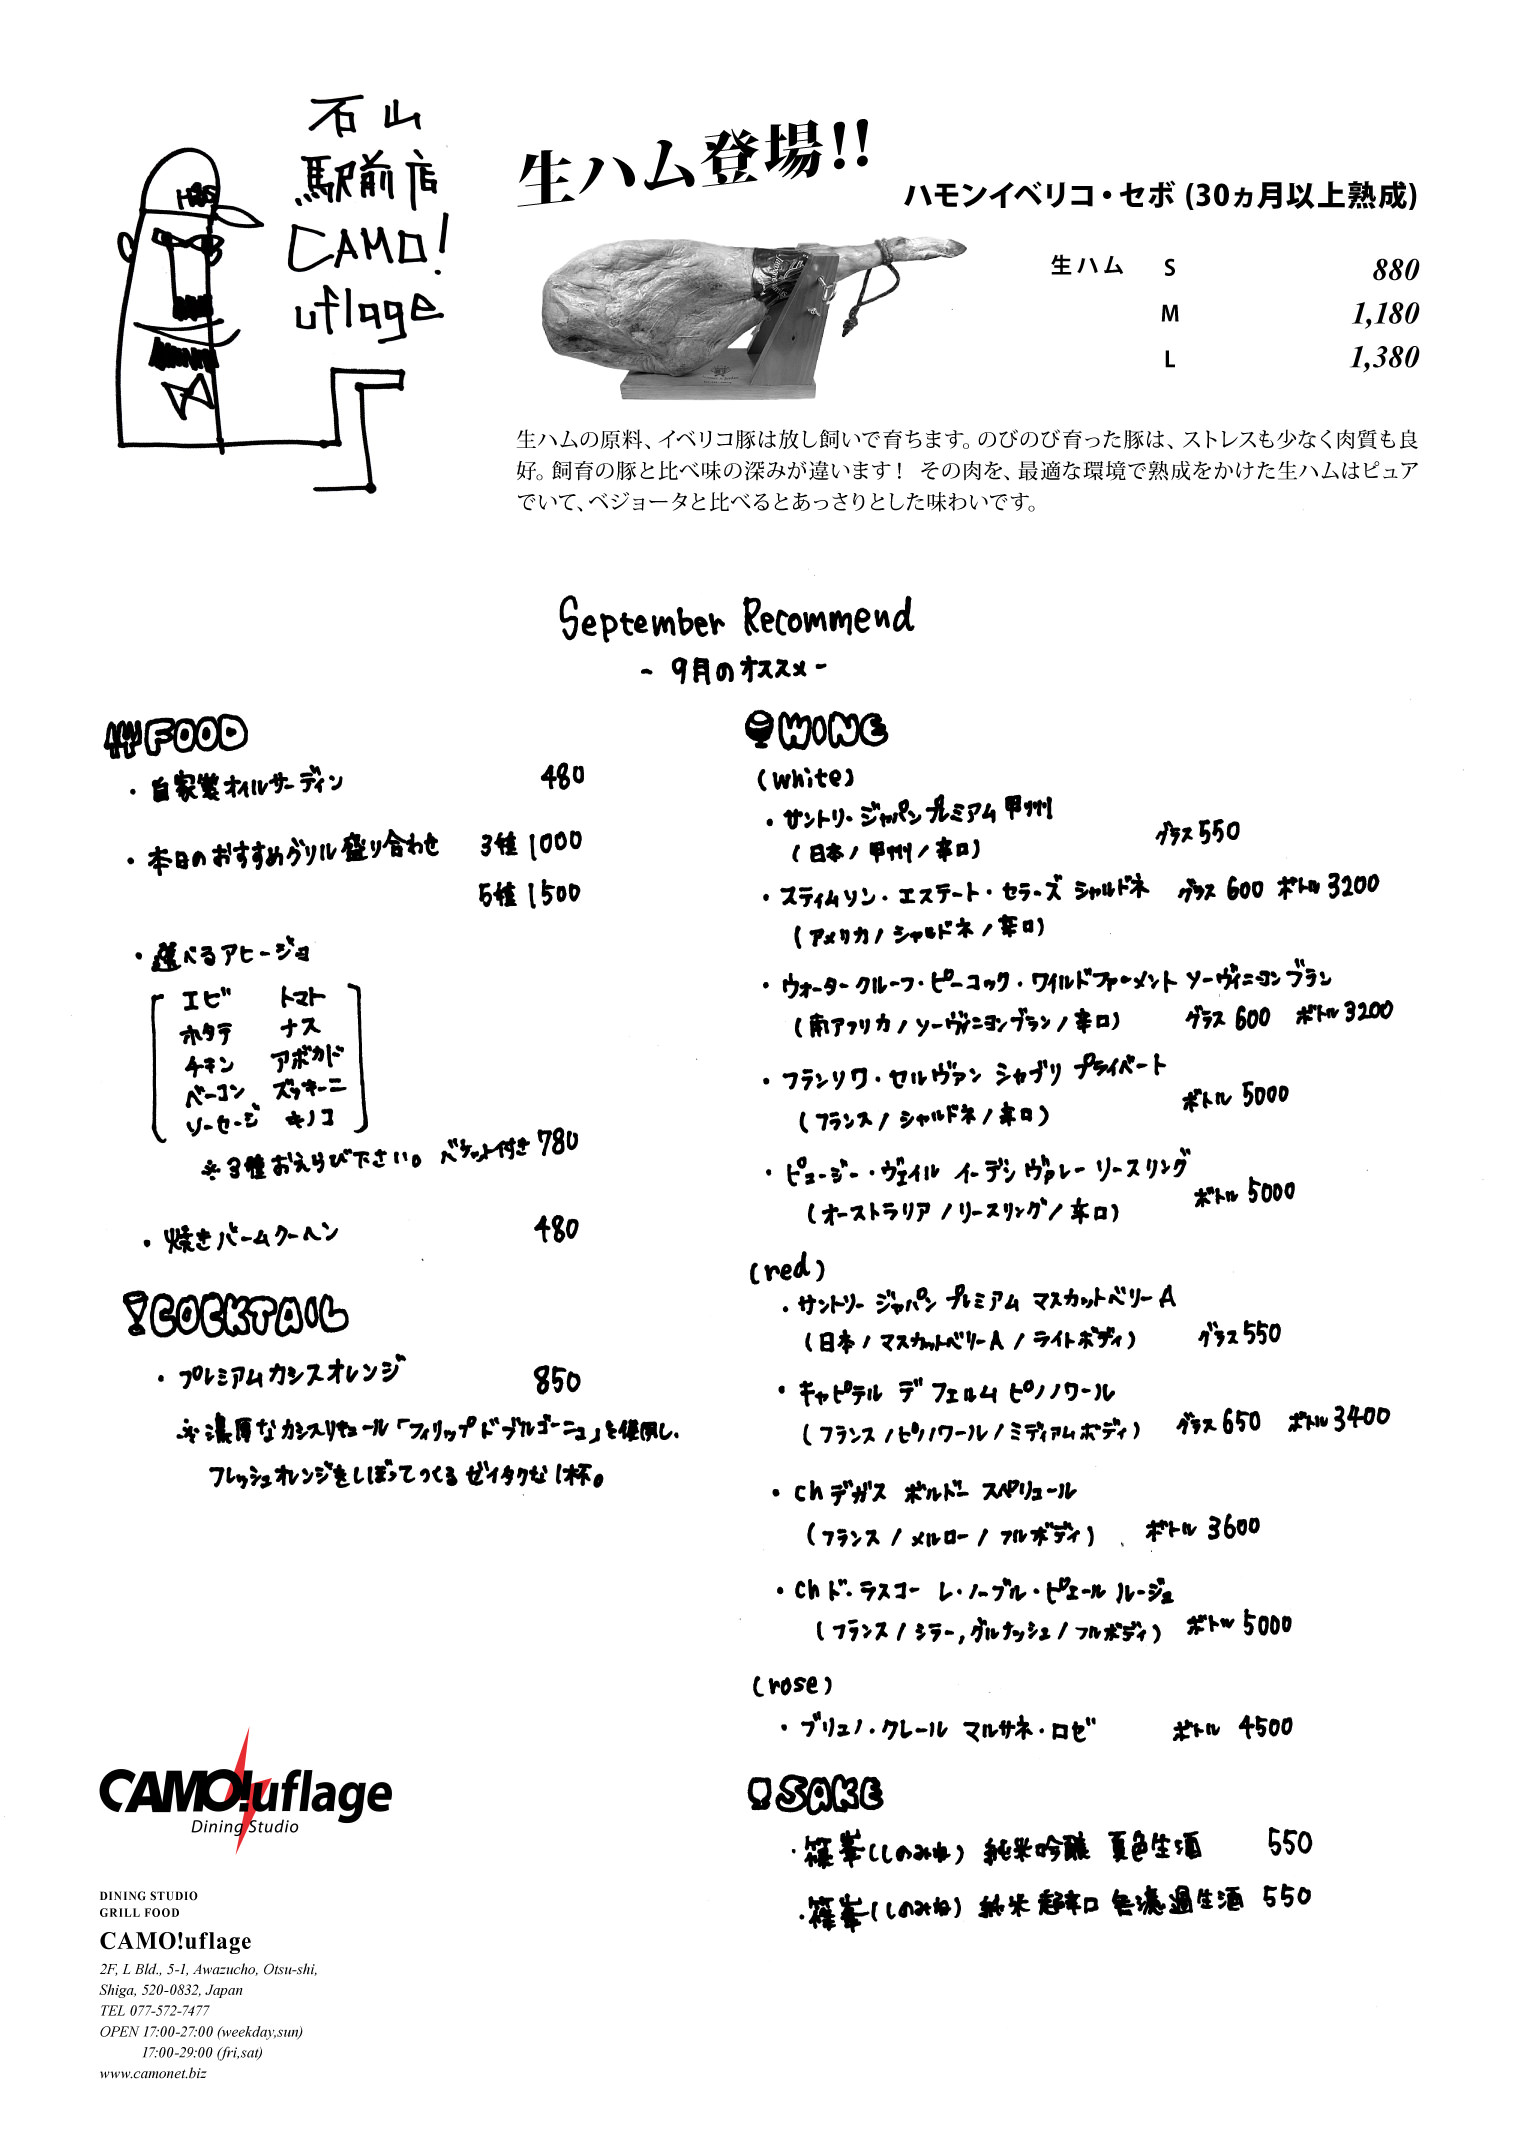 石山
駅前店
CAMO!
uflage
H&S
生ハム登場!!
ハモンイベリコ・セボ (30ヵ月以上熟成)
生ハム S 880
M 1,180
L 1,380
生ハムの原料、イベリコ豚は放し飼いで育ちます。のびのび育った豚は、ストレスも少なく肉質も良
好。飼育の豚と比べ味の深みが違います! その肉を、最適な環境で熟成をかけた生ハムはピュア
でいて、ベジョータと比べるとあっさりとした味わいです。
September Recommend
- 9月のオススメ -
FOOD
・自家製オイルサーディン 480
・本日のおすすめグリル盛り合わせ 3種 1000
5種 1500
・選べるアヒージョ
エビ トマト
ホタテ ナス
チキン アボカド
ベーコン ズッキーニ
ソーセージ キノコ
※3種おえらび下さい。バケット付き 780
・焼きバームクーヘン 480
COCKTAIL
・プレミアムカシスオレンジ 850
※濃厚なカシスリキュール「フィリップドブルゴーニュ」を使用し、
フレッシュオレンジをしぼってつくるゼイタクな1杯。
WINE
(white)
・サントリー ジャパンプレミアム 甲州
(日本/甲州/辛口) グラス550
・スティムソン・エステート・セラーズ シャルドネ グラス 600 ボトル 3200
(アメリカ/シャルドネ/辛口)
・ウォータークルーフ・ピーコック・ワイルドファーメント ソーヴィニヨンブラン
(南アフリカ/ソーヴィニヨンブラン/辛口) グラス 600 ボトル 3200
・フランソワ・セルヴァン シャブリ プライベート
(フランス/シャルドネ/辛口) ボトル 5000
・ピュージー・ヴェイル イーデンヴァレー リースリング
(オーストラリア/リースリング/辛口) ボトル 5000
(red)
・サントリー ジャパン プレミアム マスカットベリーA
(日本/マスカットベリーA/ライトボディ) グラス550
・キャピテル デ フェルム ピノノワール
(フランス/ピノノワール/ミディアムボディ) グラス650 ボトル3400
・ch デガス ボルドー スペリュール
(フランス/メルロー/フルボディ) ボトル 3600
・ch ド・ラスコー レ・ノーブル・ピエール ルージュ
(フランス/シラー,グルナッシュ/フルボディ) ボトル 5000
(rose)
・ブリュノ・クレール マルサネ・ロゼ ボトル 4500
SAKE
・篠峯(しのみね) 純米吟醸 夏色生酒 550
・篠峯(しのみね) 純米 超辛口 無濾過生酒 550
CAMO!uflage
Dining Studio
DINING STUDIO
GRILL FOOD
CAMO!uflage
2F, L Bld., 5-1, Awazucho, Otsu-shi,
Shiga, 520-0832, Japan
TEL 077-572-7477
OPEN 17:00-27:00 (weekday,sun)
17:00-29:00 (fri,sat)
www.camonet.biz